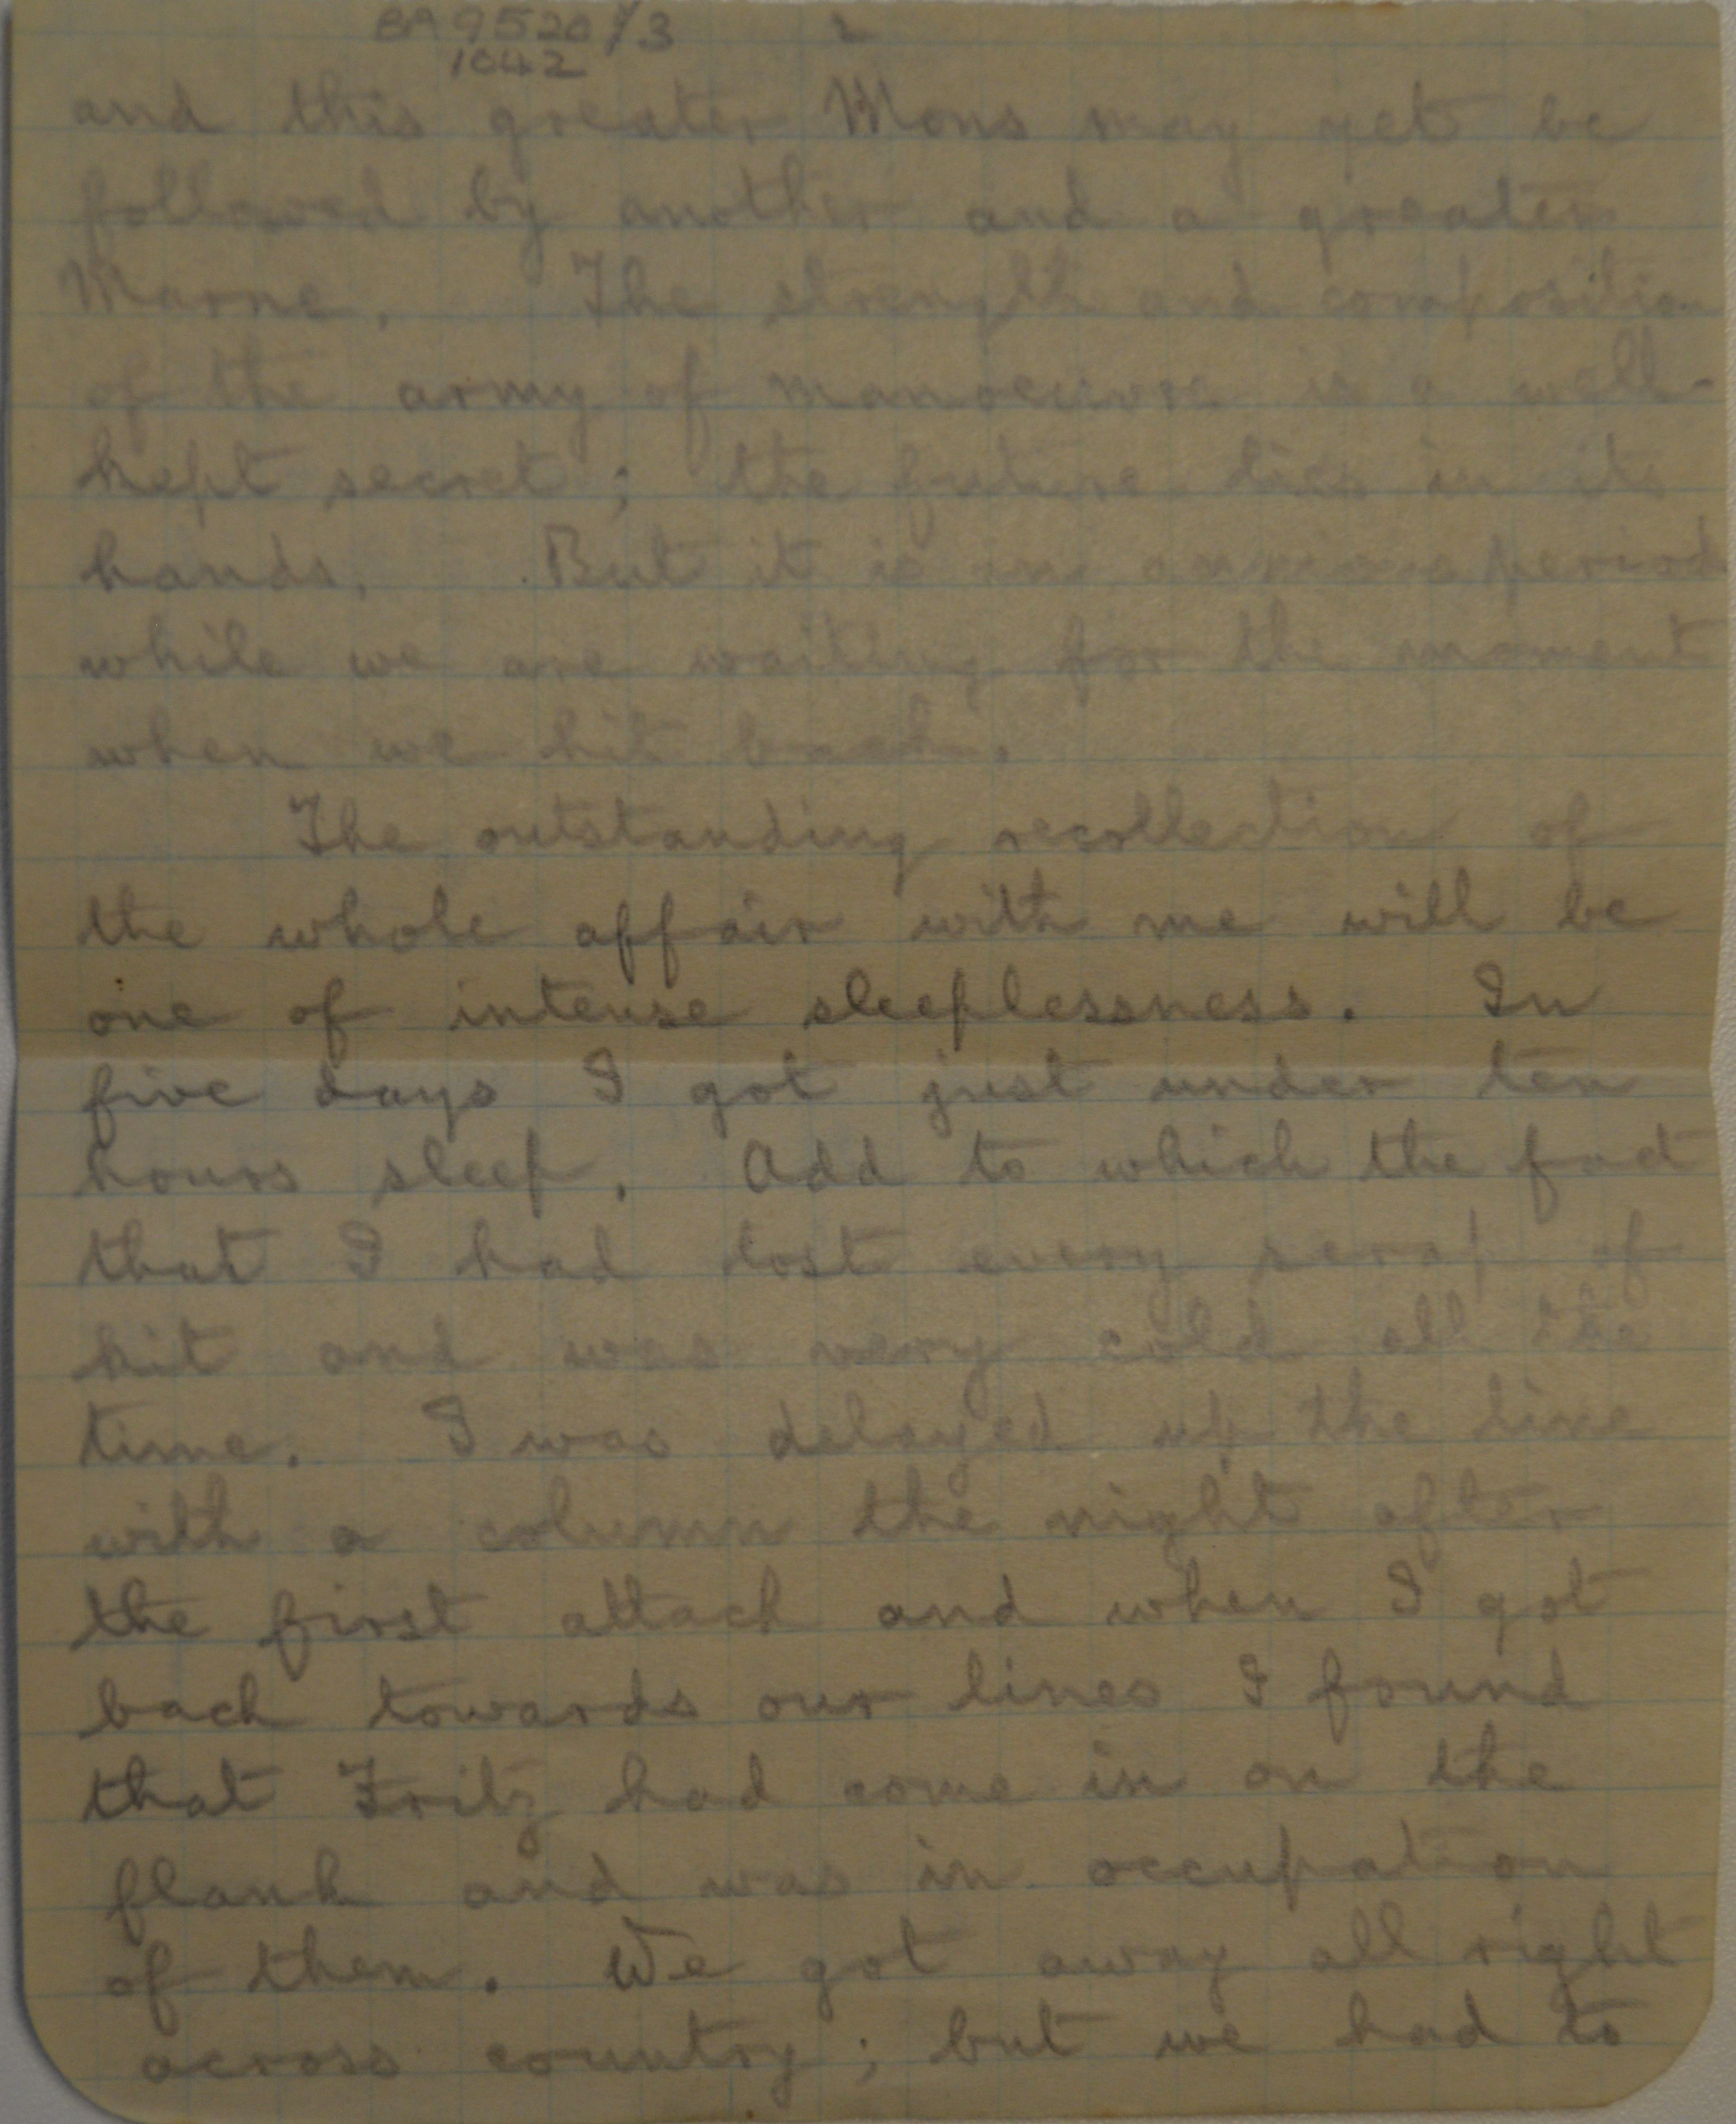 BA 9520/3 2
1042
and this greater Mons may yet be
followed by another and a greater
Marne. The strength and composition
of the army of manoeuvre is a well-
kept secret; the future lies in its
hands. But it is an anxious period
while we are waiting for the moment
when we hit back.
The outstanding recollection of
the whole affair with me will be
one of intense sleeplessness. In
five days I got just under ten
hours sleep. Add to which the fact
that I had lost every scrap of
kit and was very cold all the
time. I was delayed up the line
with a column the night after
the first attack and when I got
back towards our lines I found
that Fritz had come in on the
flank and was in occupation
of them. We got away all right
across country; but we had to